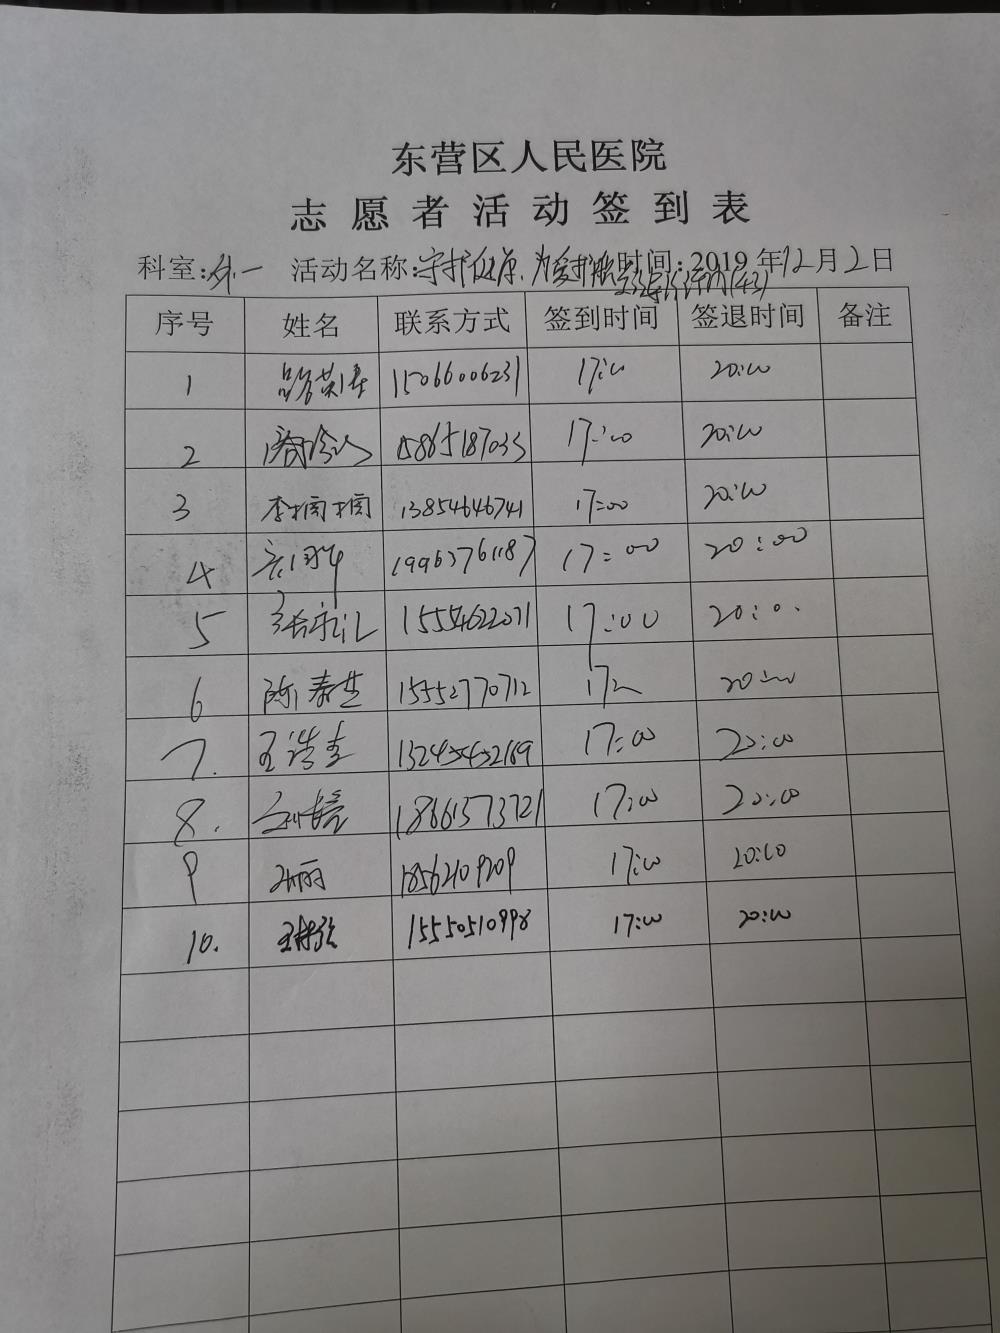 东营区人民医院
志愿者活动签到表
科室:外一 活动名称:守护健康、为爱护航 时间:2019年12月2日
序号 姓名 联系方式 签到时间 签退时间 备注
1 15066006231 17:00 20:00
2 15865187033 17:00 20:00
3 李楠楠 13854646741 17:00 20:00
4 19963761187 17:00 20:00
5 15554622071 17:00 20:0.
6 陈春芝 15552770712 20:00
7. 王浩圭 20:00 17:00
8. 18661573721 17:00 20:00
9 孙丽 18562109209 17:00 20:00
10. 15550510998 17:00 20:00